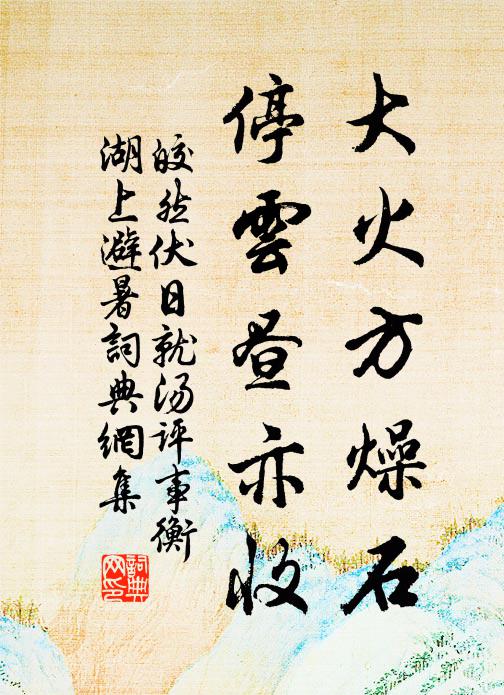 大火方燥石
停雲昼亦收
皎然伏日就湯评事衡
湖上避暑詞典網集
詞典网印